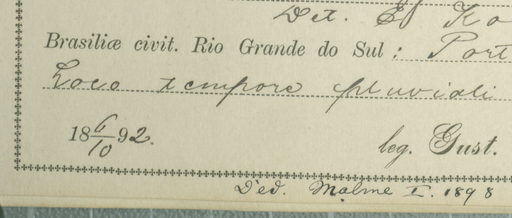 Det. E
Brasiliæ civit. Rio Grande do Sul: Port
Loco tempore pluviali
18 6/10 92.
leg. Gust.
Ded. Malme I. 1898